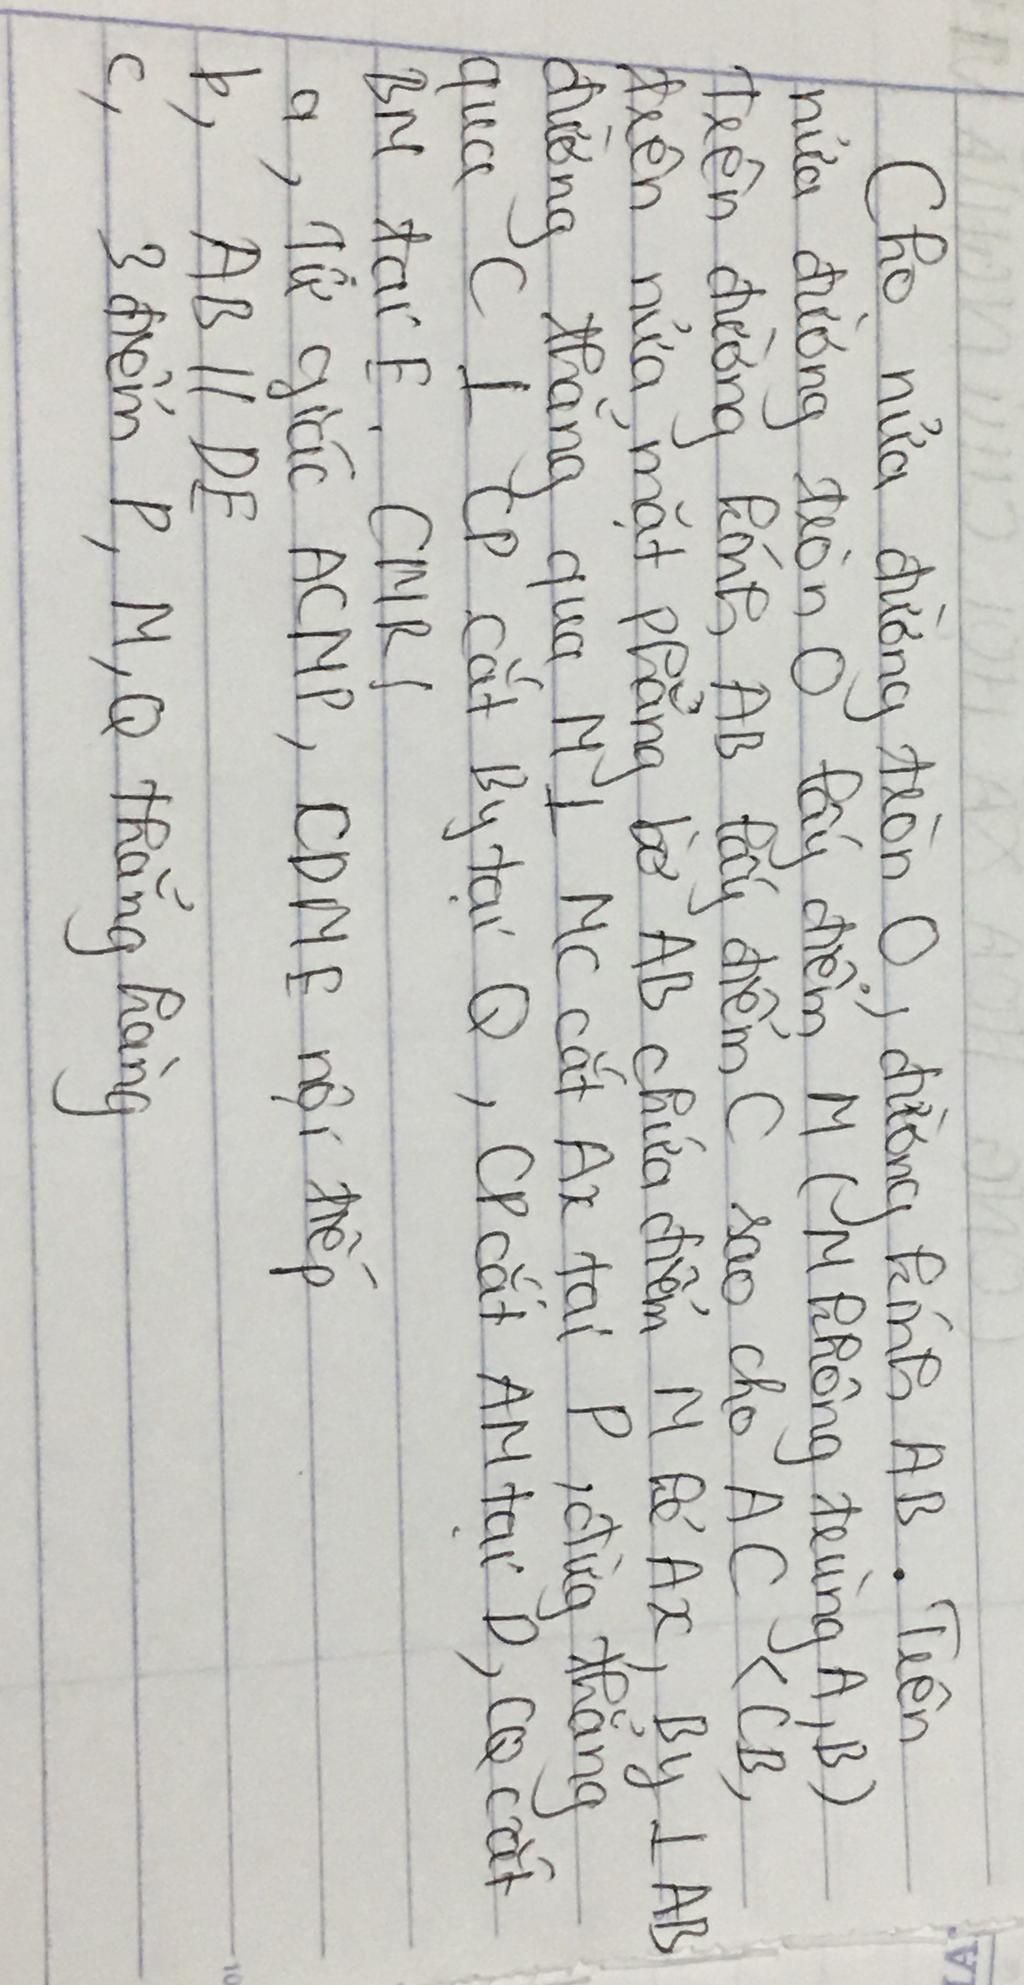 Cho nửa đường tròn O, đường kính AB. Trên
nửa đường tròn O lấy điểm M (M không trùng A, B)
Trên đường kính AB lấy điểm C sao cho AC < CB,
trên nửa mặt phẳng bờ AB chứa điểm M kẻ Ax, By ⊥ AB
đường thẳng qua M ⊥ MC cắt Ax tại P, đường thẳng
qua C ⊥ CP cắt By tại Q, CP cắt AM tại D, CQ cắt
BM tại E. CMR!
a, Tứ giác ACMP, CDME nội tiếp
b, AB // DE
c, 3 điểm P, M, Q thẳng hàng